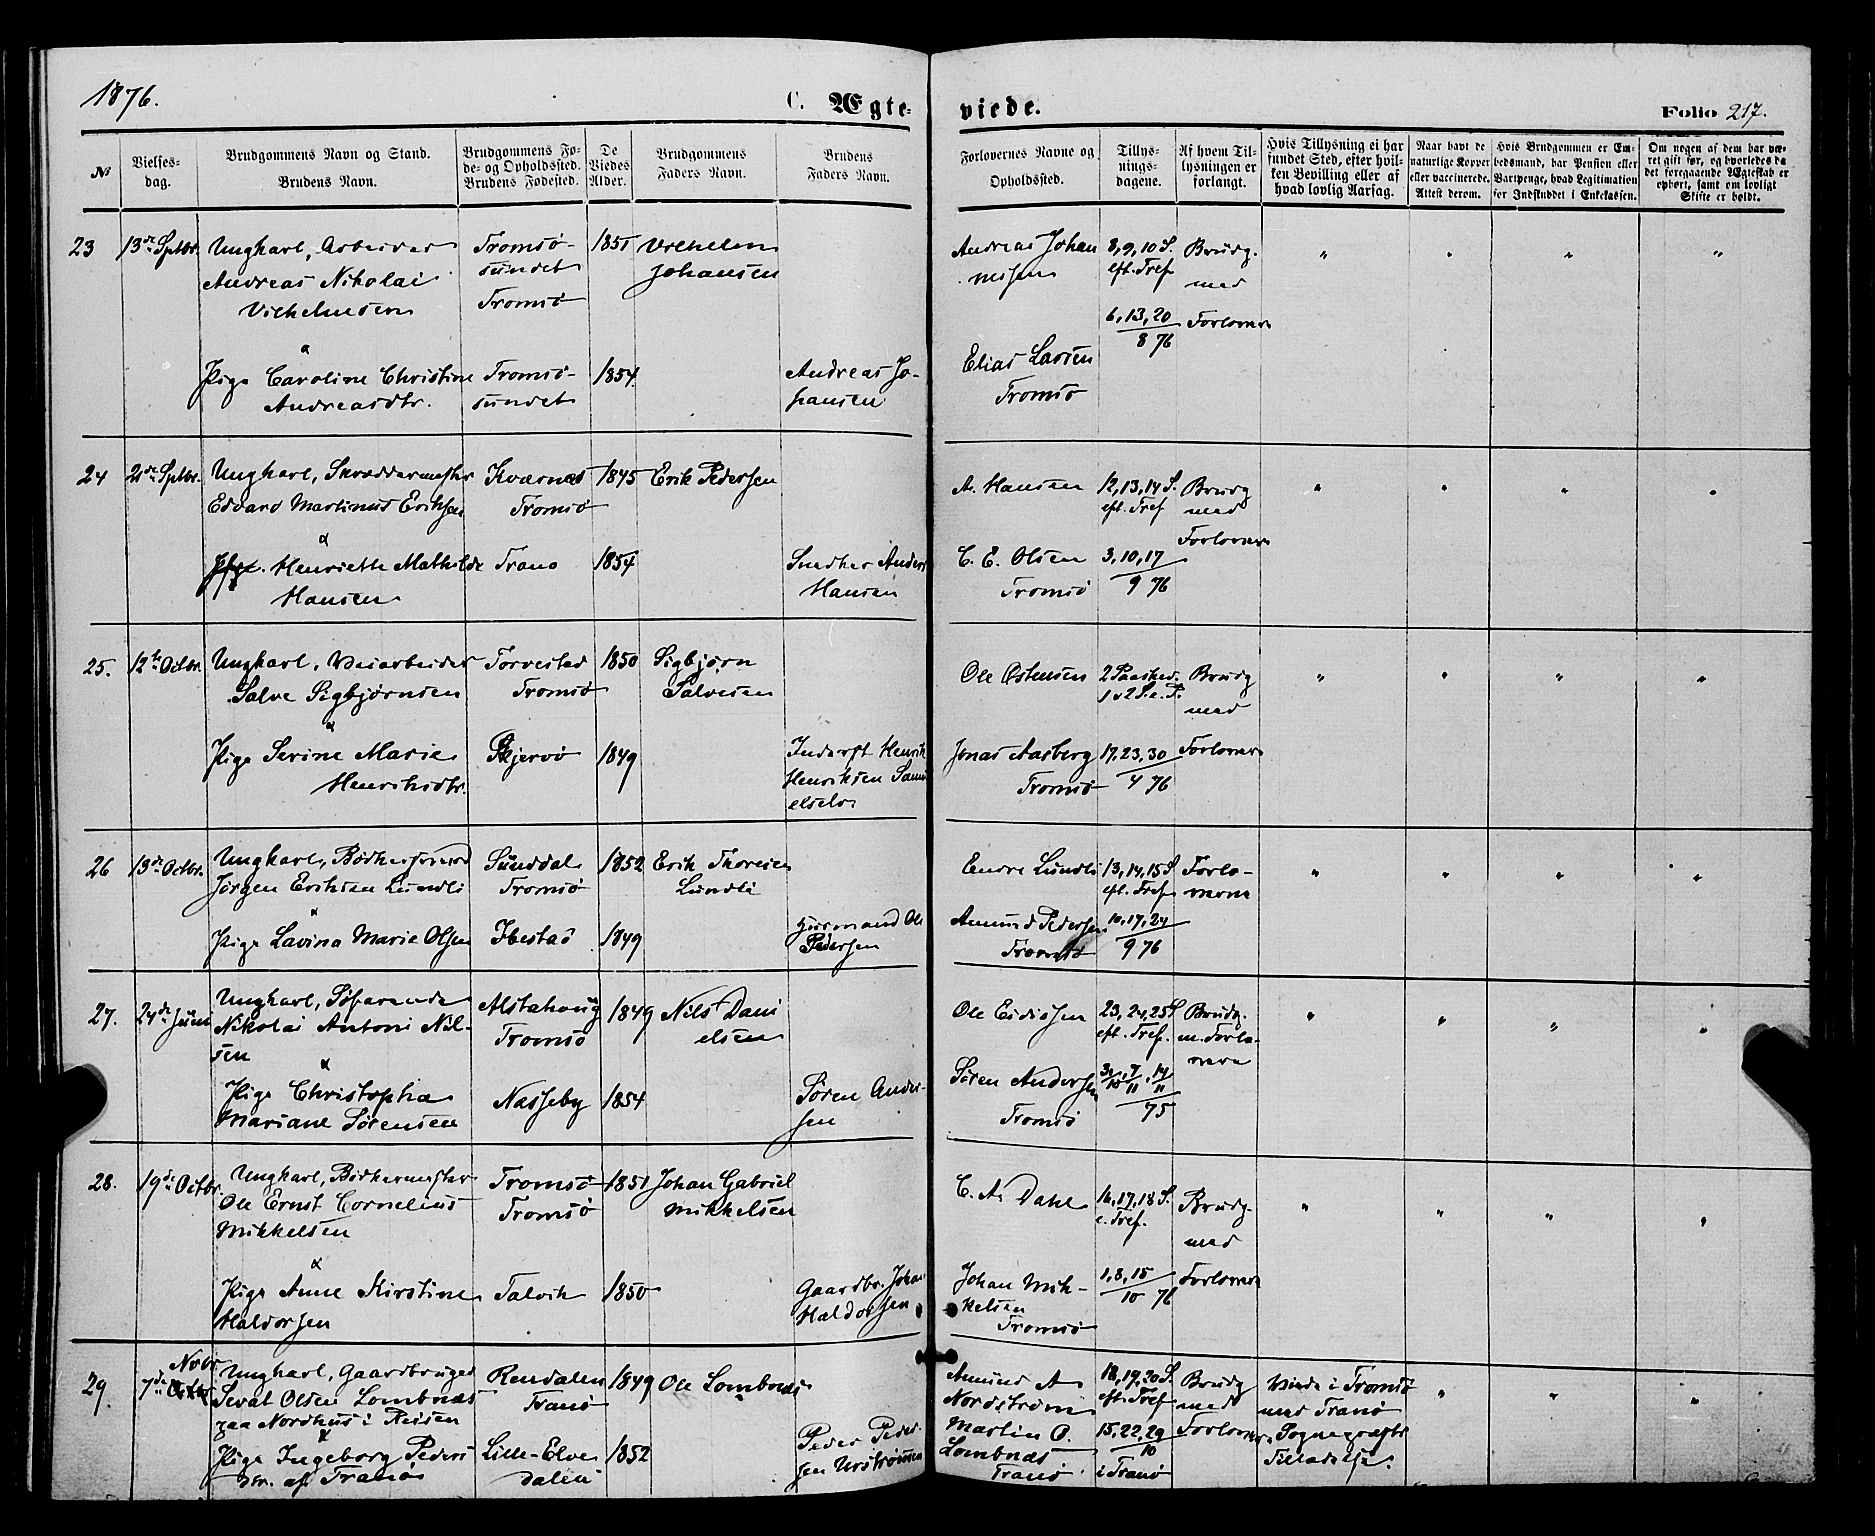 1876.
C. Ægte-
viede.
Folio 217.
No
Vielses-
dag.
Brudgommens Navn og Stand.
Brudens Navn.
Brudgommens Fø-
de- og Opholdssted.
Brudens Fødested.
De
Viedes
Alder.
Brudgommens
Faders Navn.
Brudens
Faders Navn.
Forlovernes Navne og
Opholdssted.
Tillys-
nings-
dagene.
Af hvem Til-
lysningen er
forlangt.
Hvis Tillysning ei har
fundet Sted, efter hvil-
ken Bevilling eller af
hvad lovlig Aarsag.
Naar havt de
naturlige Kopper
eller vaccinerede.
Attest derom.
Hvis Brudgommen er Em-
bedsmand, har Pension eller
Vartpenge, hvad Legitimation
for Indskuddet i Enkekassen.
Om nogen af dem har væ-
ret gift før, og hvorledes da
det foregaaende Ægteskab er
ophørt, samt om lovligt
Skifte er holdt.
23
13de Septbr.
Ungkarl, Arbeider
Andreas Nikolai
Vilhelmsen
&
Pige Caroline Christine
Andreasdtr.
Tromsø-
sundet
Tromsø
Tromsø-
sundet
1851
1854
Vilhelm
Johansen
Andreas Jo-
hansen
Andreas Johan
nesen
Elias Larsen
Tromsø
8, 9, 10 S.
eft. Tref
6, 13, 20
8 76
Brudg.
med
Forlovere
" " " "
24
21de Septbr.
Ungkarl, Skræddermester
Edvard Martinus Eriksen
&
Pige Henriette Mathilde
Hansen
Kværnes
Tromsø
Tranø
1845
1854
Erik Pedersen
Snedker Anders
Hansen
A. Hansen
C. E. Olsen
Tromsø
12, 13, 14 S.
eft. Tref
3, 10, 17
9 76
Brudg
med
Forlovere
" " " "
25.
12te Octbr.
Ungkarl, Veiarbeider
Salve Sigbjørnsen
&
Pige Serine Marie
Henriksdtr.
Torvestad
Tromsø
Skjervø
1850
1849
Sigbjørn
Salvesen
Inderst Henrik
Henriksen Samu
elselv
Ole Østensen
Jonas Aasberg
Tromsø
2 Paasked.
1 & 2 S. e. P.
17, 23, 30
4 76
Brudg
med
Forlovere
" " " "
26
13de Octbr.
Ungkarl, Bødkersvend
Jørgen Eriksen Lundli
&
Pige Lavina Marie Olsen
Sunddal
Tromsø
Ibestad
1852
1849
Erik Thoresen
Lundli
Husmand Ole
Pedersen
Endre Lundli
Amund Pedersen
Tromsø
13, 14, 15 S
eft. Tref
10, 17, 24
9 76
Forlo-
verne
" " " "
27.
24de Juni
Ungkarl, Søfarende
Nikolai Antoni Nil-
sen
&
Pige Christopha
Mariane Sørensen
Alstahoug
Tromsø
Nasseby
1849
1854
Nils Dani
elsen
Søren Ander-
sen
Ole Eidissen
Søren Andersen
Tromsø
23, 24, 25 S.
eft. Tref.
31/10, 7/11, 14/11
75
Brudg.
m. Forlo-
vere
" " " "
28.
19de Octbr.
Ungkarl, Bødkermester
Ole Ernst Cornelius
Mikkelsen
&
Pige Anne Kirstine
Haldorsen
Tromsø
Tromsø
Talvik
1851
1850
Johan Gabriel
Mikkelsen
Gaardbr. Johan
Haldorsen
C. A. Dahl
Johan Mik-
kelsen
Tromsø
16, 17, 18 S.
e. Tref.
1, 8, 15
10 76
Brudg.
med
Forlovere
" " " "
29.
Novbr.
7de Octbr
Ungkarl, Gaardbruger
Sevat Olsen Lombnæs
paa Nordhus i Reisen
&
Pige Ingeborg Peders
dtr. af Tranø
Rendalen
Tranø
Lille-Elve
dalen
1849
1852
Ole Lombnæs
Peder Peder-
sen Urstrømmen
Amund A
Nordstrøm
Martin O.
Lombnæs
Tranø
18, 19, 20 S.
eft. Tref
15, 22, 29
10
i Tranø
Brudg
med
Forlovere
Viede i Tromsø
med Tranø
Sognepræsts
Tilladelse.
" " "